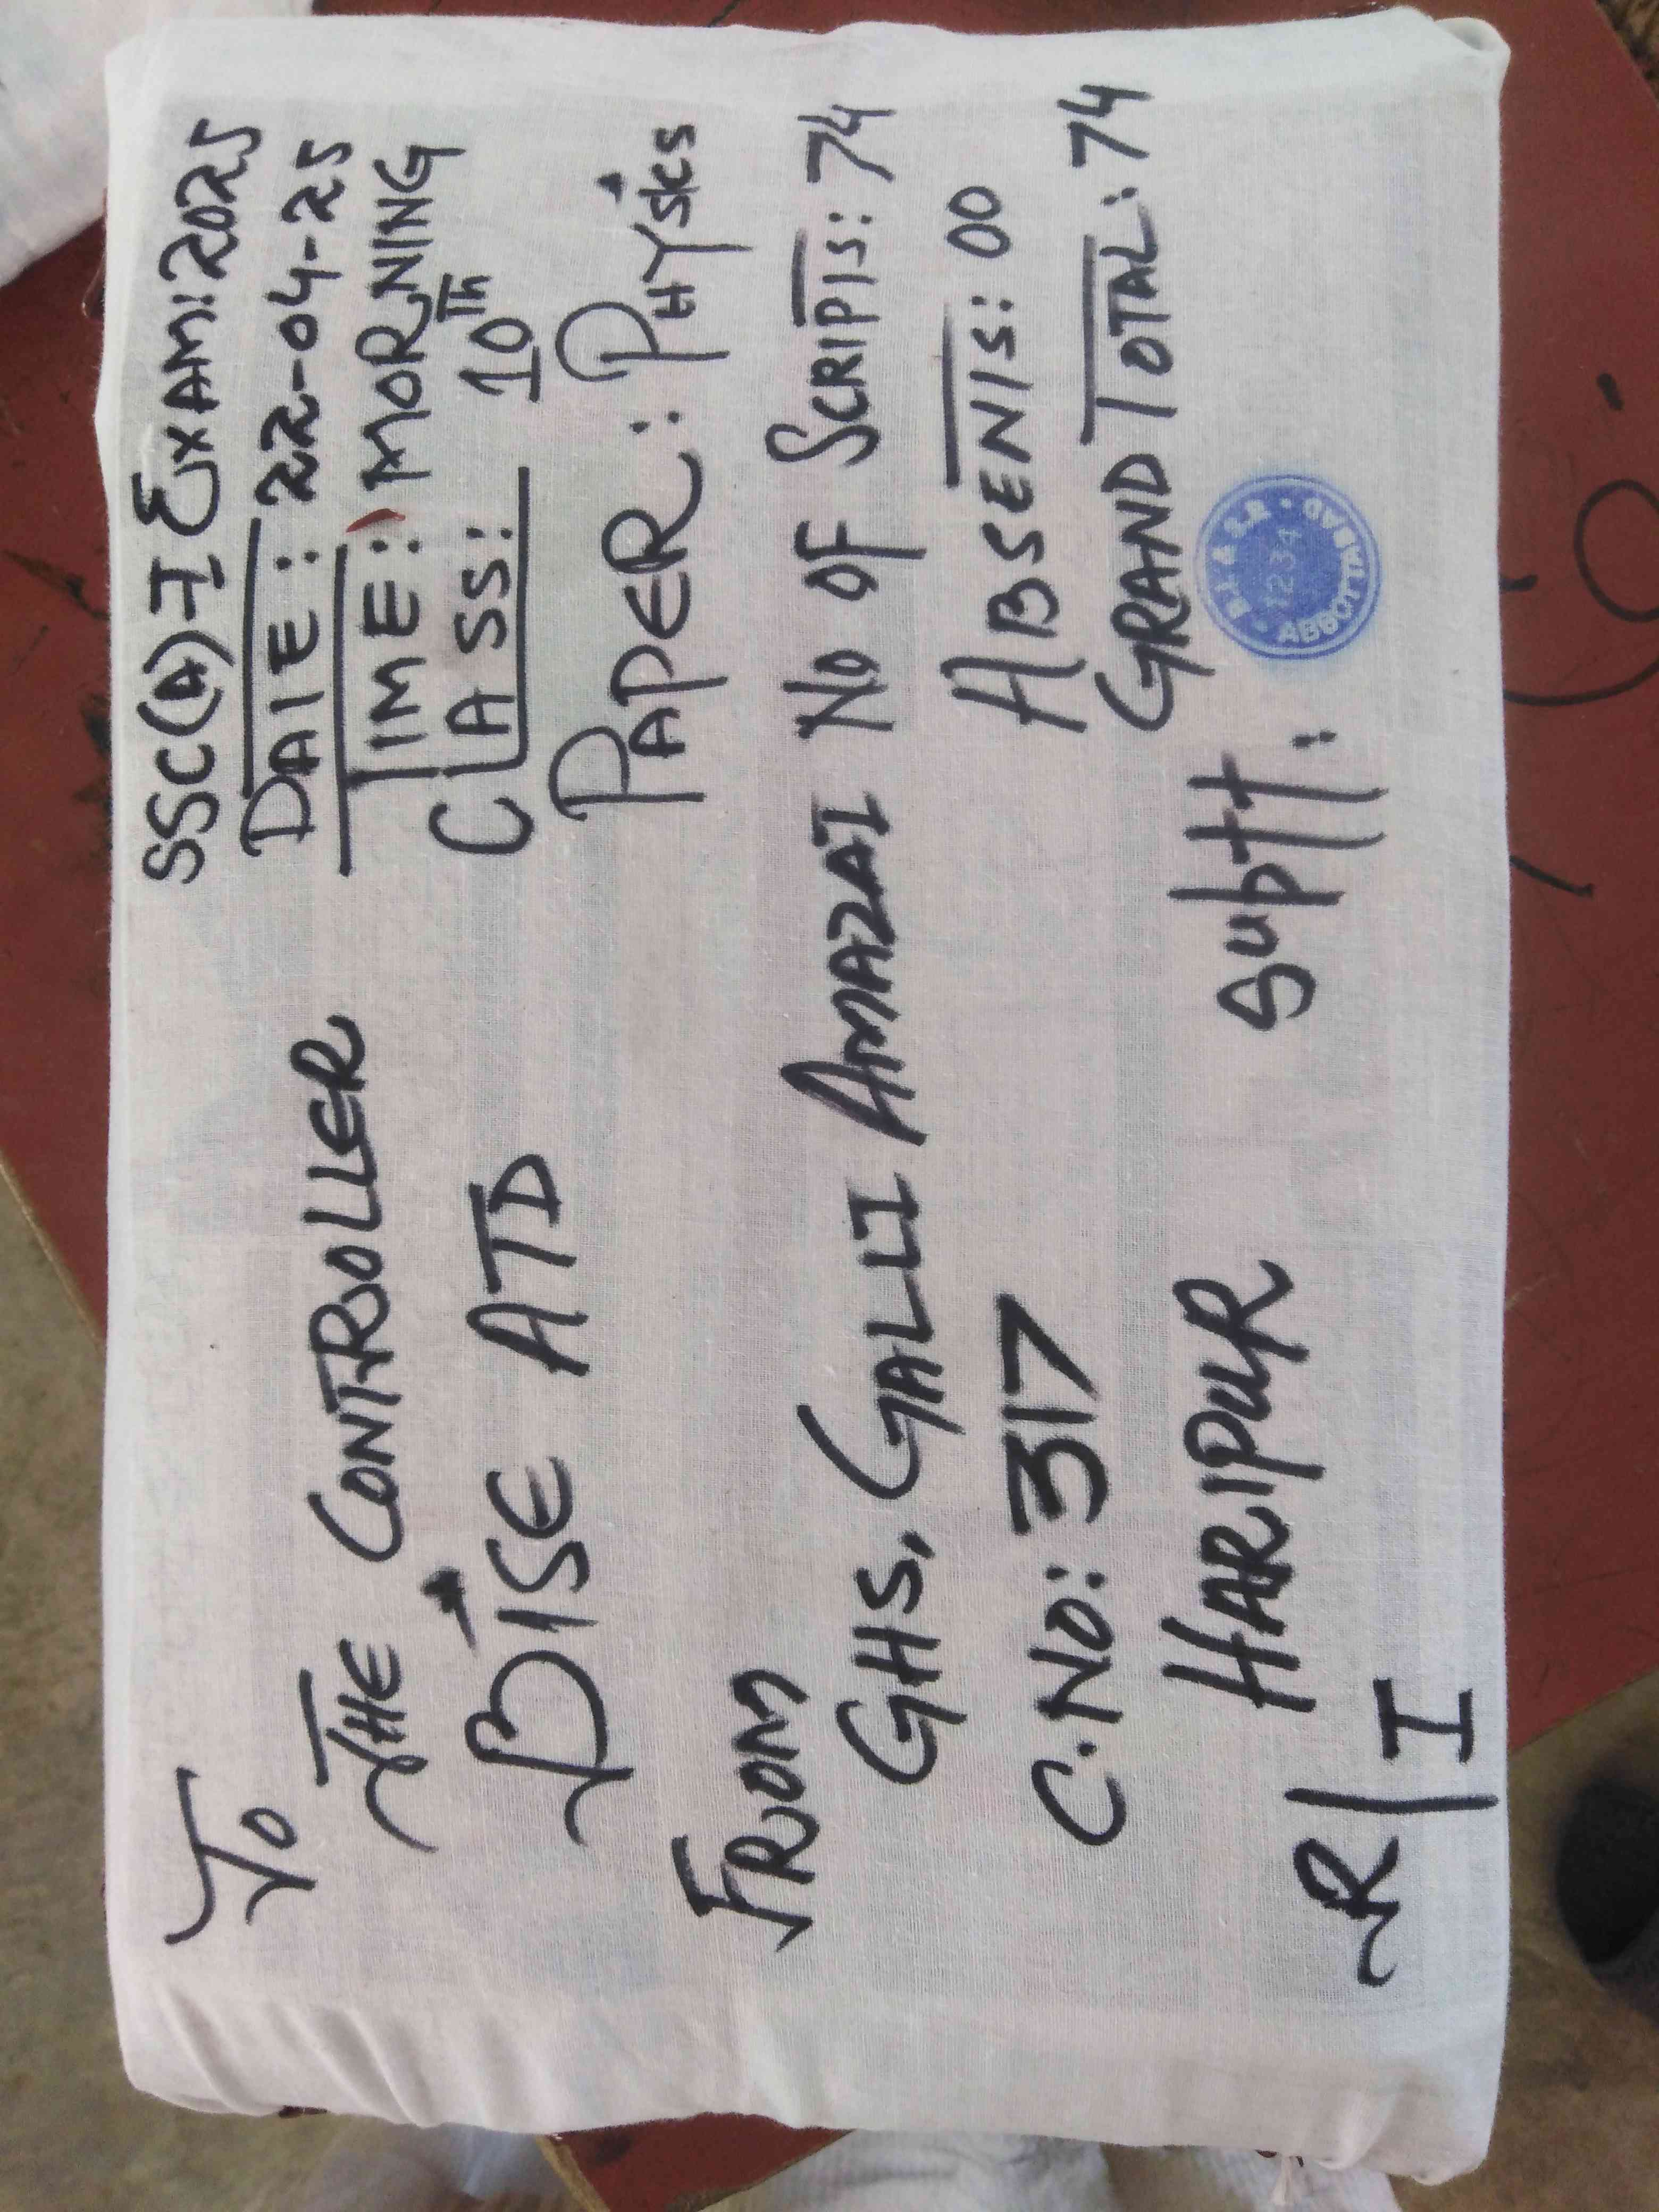 SSC(A)-I EXAM:2025
DATE: 22-04-25
TIME: MORNING
CLASS: 10TH
PAPER: PHYSICS
To
THE CONTROLLER
BISE ATD
FROM
GHS, GALLI AMAZAI
C.No: 317
HARIPUR
R/I
No OF SCRIPTS: 74
ABSENTS: 00
GRAND TOTAL: 74
Suptt:
B.I. & S.E.
1234
ABBOTTABAD